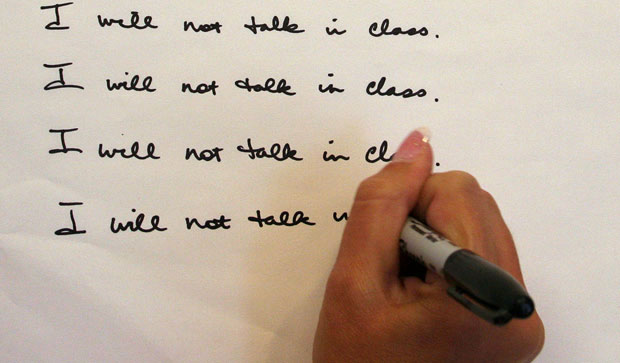 I will not talk in class.
I will not talk in class.
I will not talk in
I will not talk